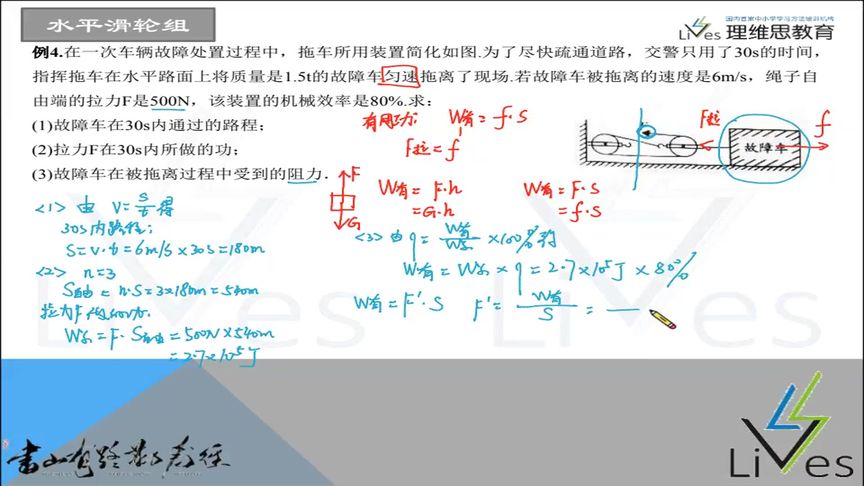 水平滑轮组
国内首家中小学学习方法培训机构
Lives 理维思教育
例4.在一次车辆故障处置过程中，拖车所用装置简化如图.为了尽快疏通道路，交警只用了30s的时间，
指挥拖车在水平路面上将质量是1.5t的故障车匀速拖离了现场.若故障车被拖离的速度是6m/s，绳子自
由端的拉力F是500N，该装置的机械效率是80%.求：
(1)故障车在30s内通过的路程；
(2)拉力F在30s内所做的功；
(3)故障车在被拖离过程中受到的阻力．
有用功: W有=f·S
F拉=f
F拉
f
故障车
F
G
W有=F·h
=G·h
W有=F·S
=f·S
<1> 由 V=S/t得
30S内路程:
S=V·t=6m/s×30s=180m
<2> n=3
S自由=n·S=3×180m=540m
拉力F做的功:
W总=F·S自由=500N×540m
=2.7×10⁵J
<3> 由η=W有/W总×100%得
W有=W总×η=2.7×10⁵J×80%
W有=F'·S F'=W有/S=
书山有路勤为径
Lives